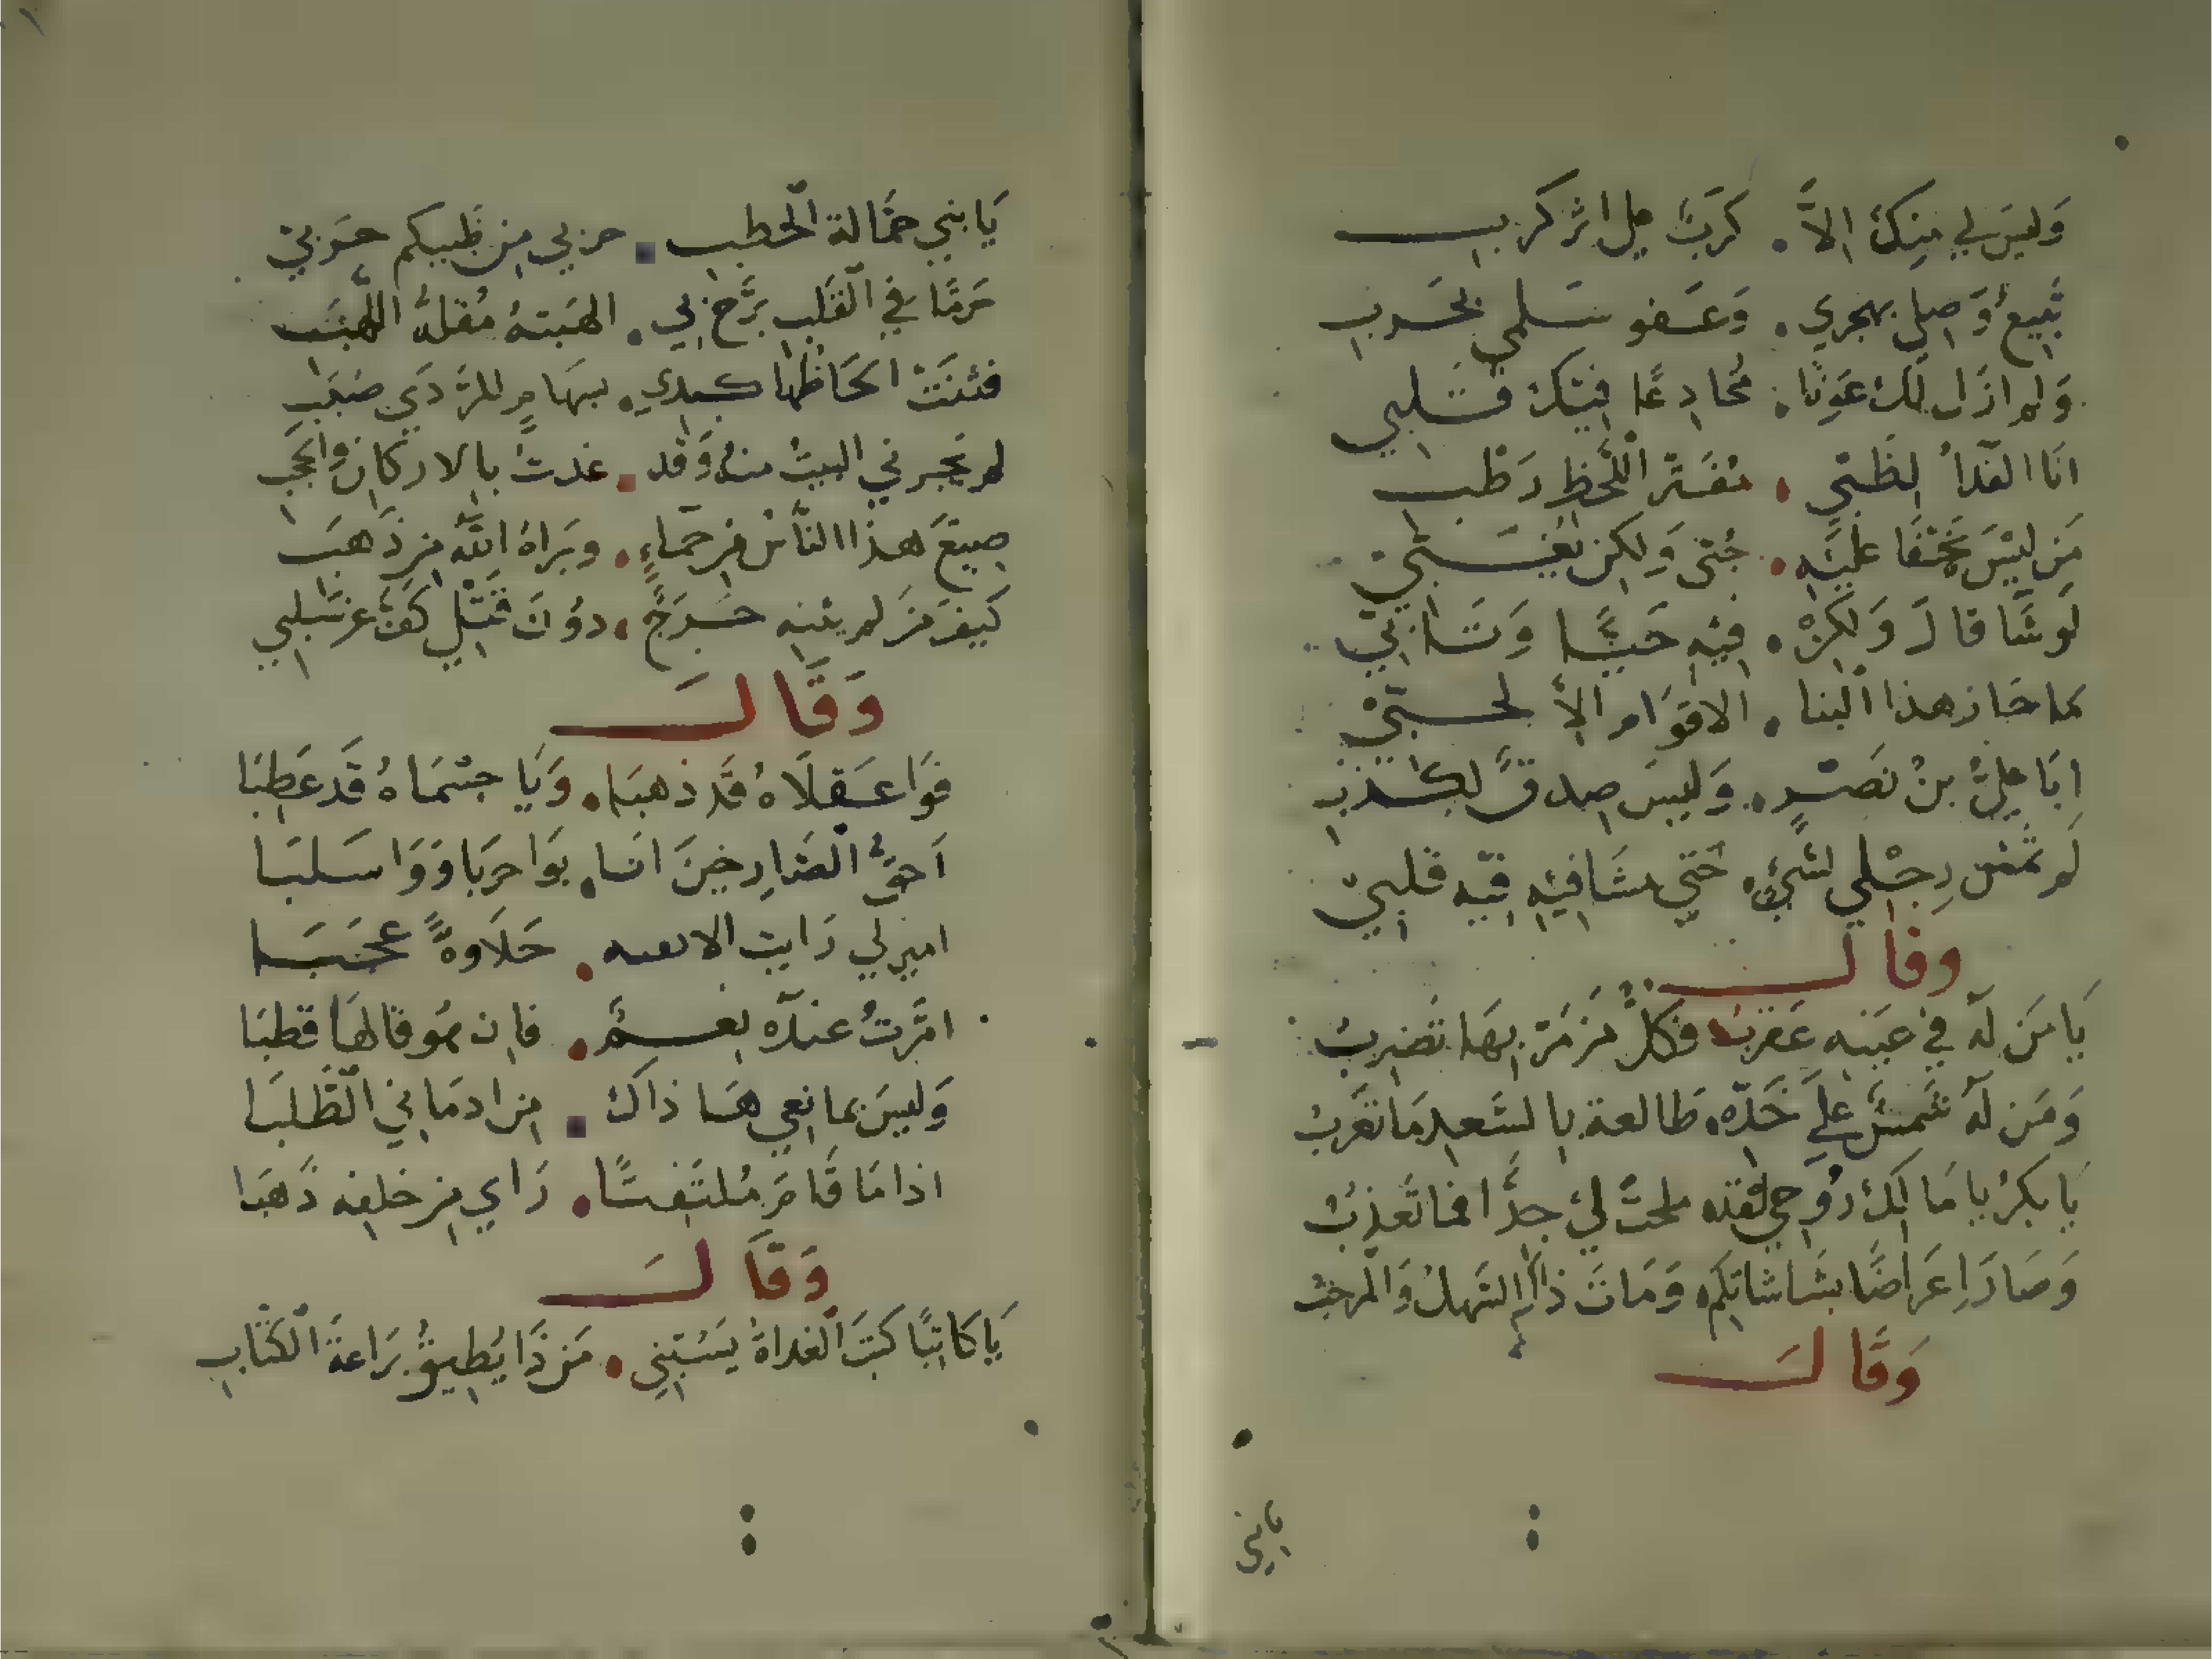 وَليسَ لي مِنكَ الاَّ . كَرَبٌ علي اثر كربِ
تَبيعُ وَصلي بهجري . وَعَفو سَلمي بحَربِ
وَلم ازَل لك عَونًا . مُخادِعًا فيكَ قَلبي
انَا الفدآُ لِظَبيٍ . مُفَتَّر اللَّحظِ رَطب
مَن ليسَ يَخفَا عَليَهِ . حُبّي وَلكِن يُغبّي
لَو شَا قالَ وَلكِنْ . فيْهِ حَيًا وَتَابّي
كما حَاز هذا البنا . الاقوَام الاَّ لحبّي
ابَا عليّ بنُ نَصْرٍ . وَليسَ صِدقٌ لكذبِ
لَم تمشِ رِجْلي لشيءٍ . حَتي مشَا فيْهِ قلبيْ
وقالَ
يَا مَن لَهُ في عَينِهِ عَقربُ . فكلُّ مَن مَرّ بهَا تضربُ
وَمَن لَهُ شمسٌ عَلي خَدّه . طَالعة بالسَعدِ مَا تغرُبُ
يَا بكرُ يا مَالكَ رُوحي لقد . ملحتَ لي جدًّا فما تعذبُ
وَصَارَ اِعرَاضًا بشَاشاتكم . وَمَات ذاك السَهلُ وَالمرحبُ
وَقَالَ
يابني
يَا بَني حمَّالة الحَطبِ . حربي مِن ظَبيكم حَرَبيْ
حَرمًا في القَلبِ بَرَّح بي . الهَبتهُ مُقلةُ اللهَبَ
فتنَتْ الحَاظهَا كبدي . بسهَامٍ للرَّدَي صُيُبِ
لم تجرني البيتُ منهُ وَقد . عَدتُ بالاركانِ وَالحجُبِ
صِيغَ هذا النَّاسُ مِن حمَاءٍ . وبَرَاهُ اللّه مِن ذهَبَ
كَيفَ مَن لم يثنهِ حَرَجٌ . دوُنَ قَتْلي كفَّ عَن سَلبي
وَقَالَ
فوَا عَقلاَهُ قَد ذهبَا . وَيَا جسْمَاهُ قَد عَطِبَا
اَحقُّ الصَّارِخينَ انا . بوَا حرَبَا وَوَا سَلبَا
اميرلي رَايت الا . حَلاَوةً عجبَا
امَّرتُ عندَهُ بفَمٍ . فان هَوُ قالهَا قطبَا
وَليسَ بمانعي هَا ذاكَ . مِن ادمَاني الطَّلبَا
اذا مَا قَامَ مُلتَفِتًا . رَاي مِن خلفِه ذَهَبا
وَقَالَ
يَا كَاتبًا كتبَ الغداةَ يَسُبّني . مَن ذَا يُطيقُ بَرَاعةَ الكتَّابِ